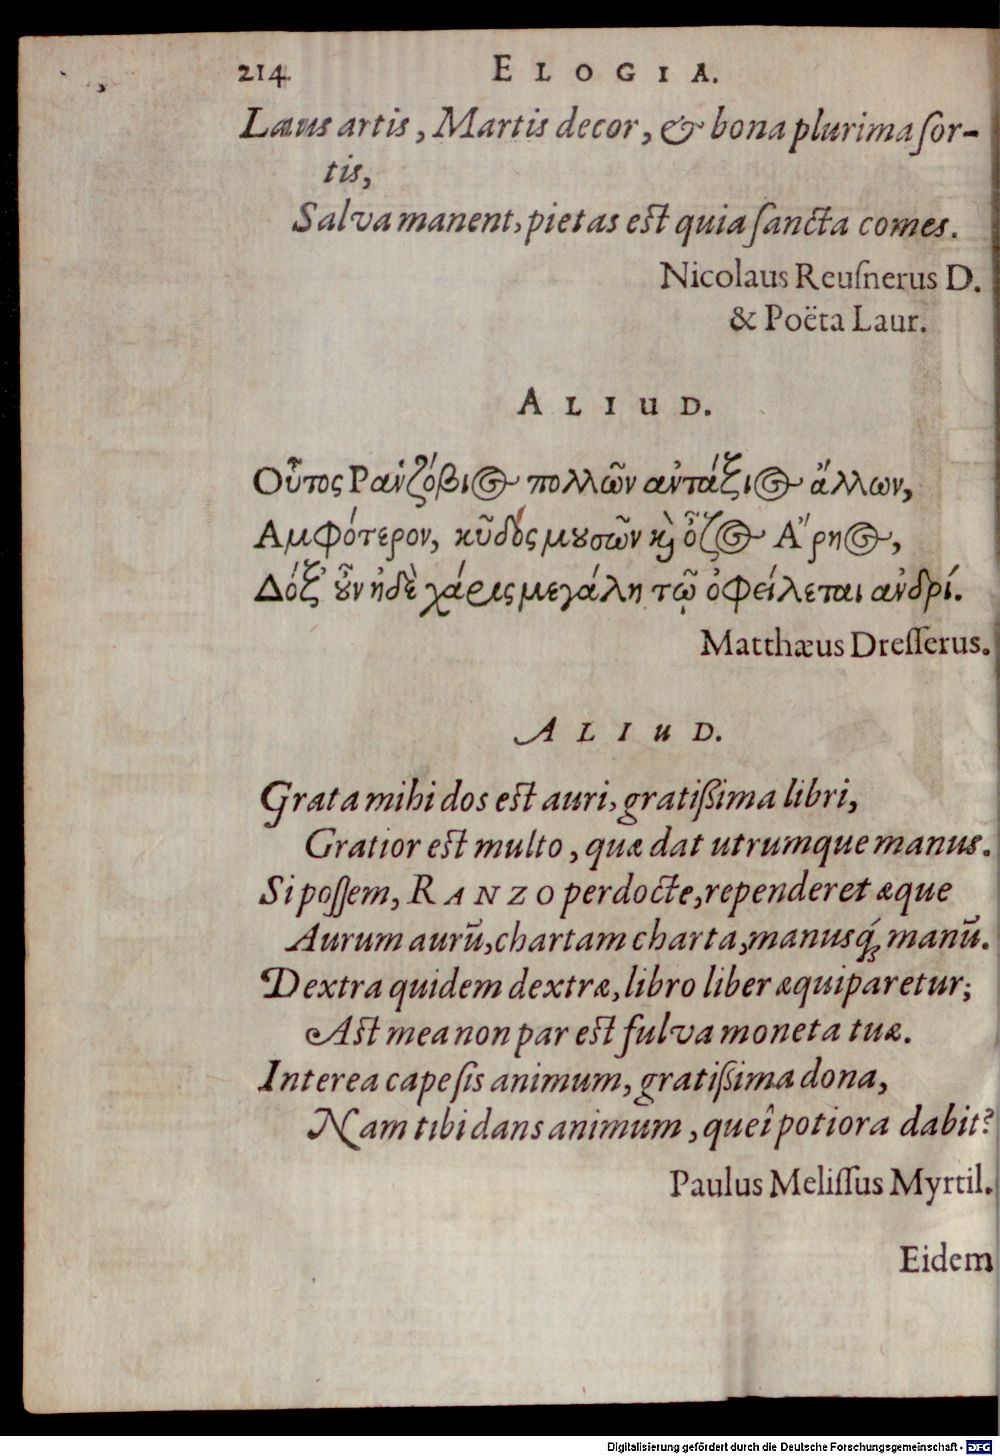 214 ELOGIA.
Laus artis, Martis decor, & bona plurima ſor-
tis,
Salva manent, pietas eſt quia ſancta comes.
Nicolaus Reuſnerus D.
& Poëta Laur.
ALIUD.
Οὗτος Ραντζόβιος πολλῶν ἀντάξιος ἄλλων,
Αμφότερον, κῦδός μουσῶν καὶ ὄζος Ἄρηος,
Δόξ' οὖν ἠδὲ χάρις μεγάλη τῷ ὀφείλεται ἀνδρί.
Matthæus Dreſſerus.
ALIUD.
Grata mihi dos eſt auri, gratiſsima libri,
Gratior eſt multo, quæ dat utrumque manus.
Si poſſem, RANZO perdocte, rependeret æque
Aurum aurũ, chartam charta, manusq́; manũ.
Dextra quidem dextræ, libro liber æquiparetur;
Aſt mea non par eſt fulva moneta tuæ.
Interea capeſis animum, gratiſsima dona,
Nam tibi dans animum, queî potiora dabit?
Paulus Meliſſus Myrtil.
Eidem
Digitalisierung gefördert durch die Deutsche Forschungsgemeinschaft - DFG